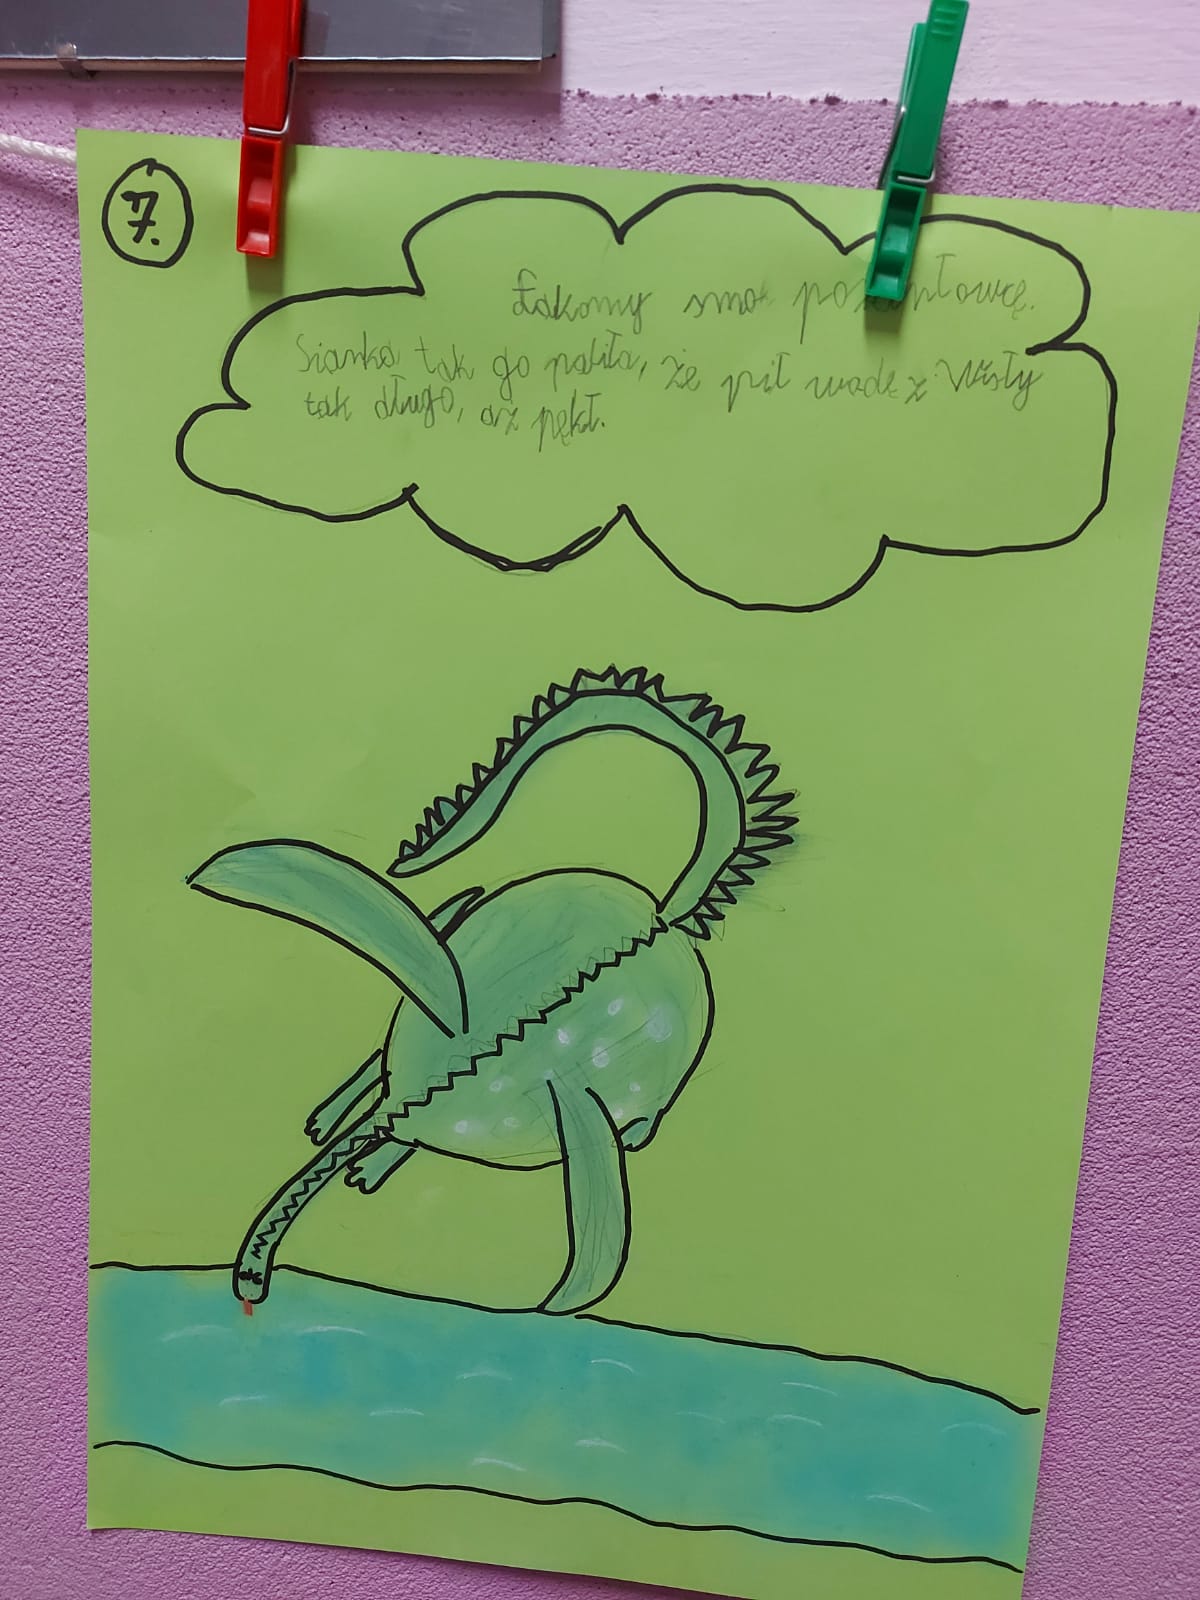 7.
Łakomy smok
Sianko tak go paliło, że pił wodę z Wisły
tak długo, aż pękł.